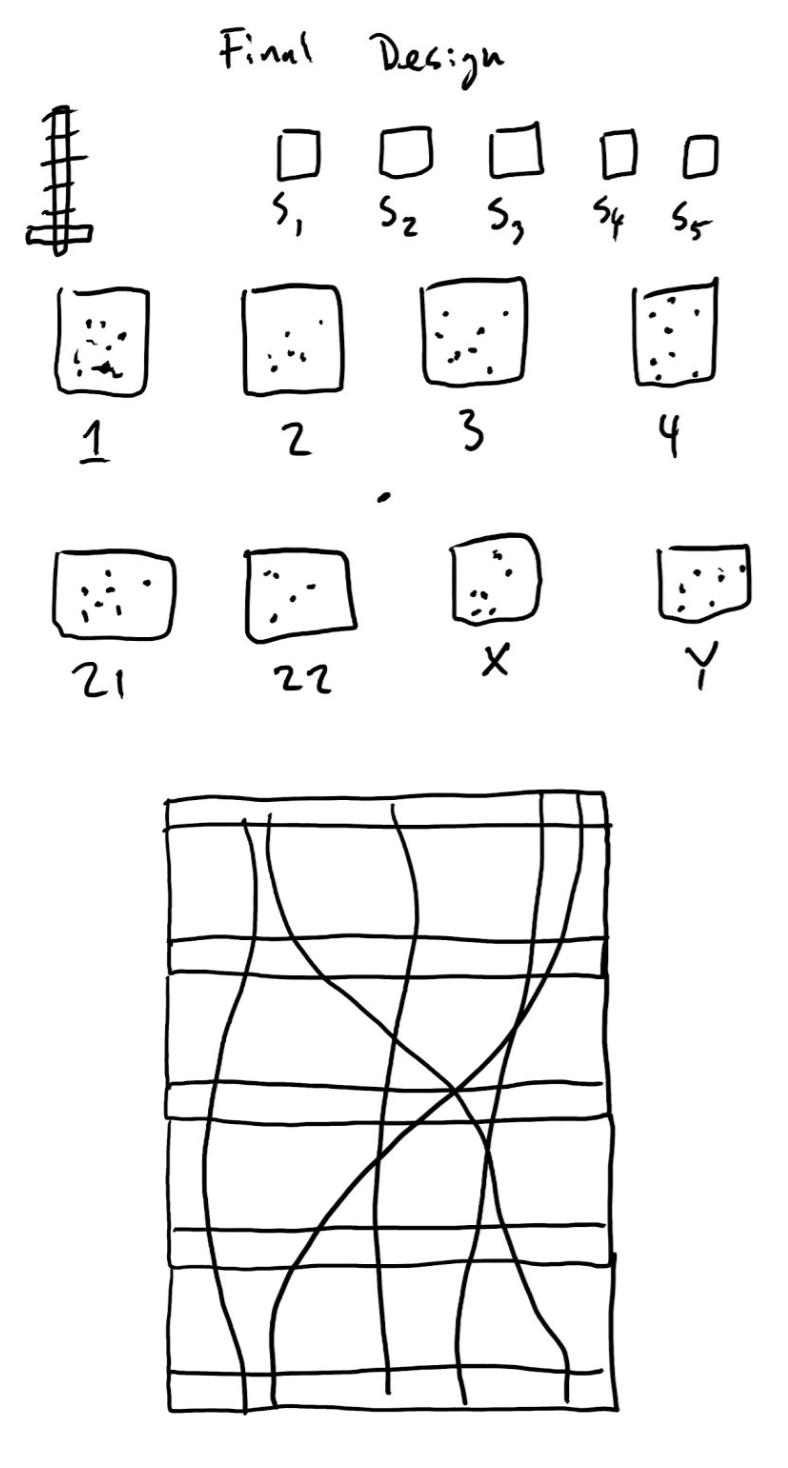 Final Design
S1 S2 S3 S4 S5
1 2 3 4
21 22 X Y